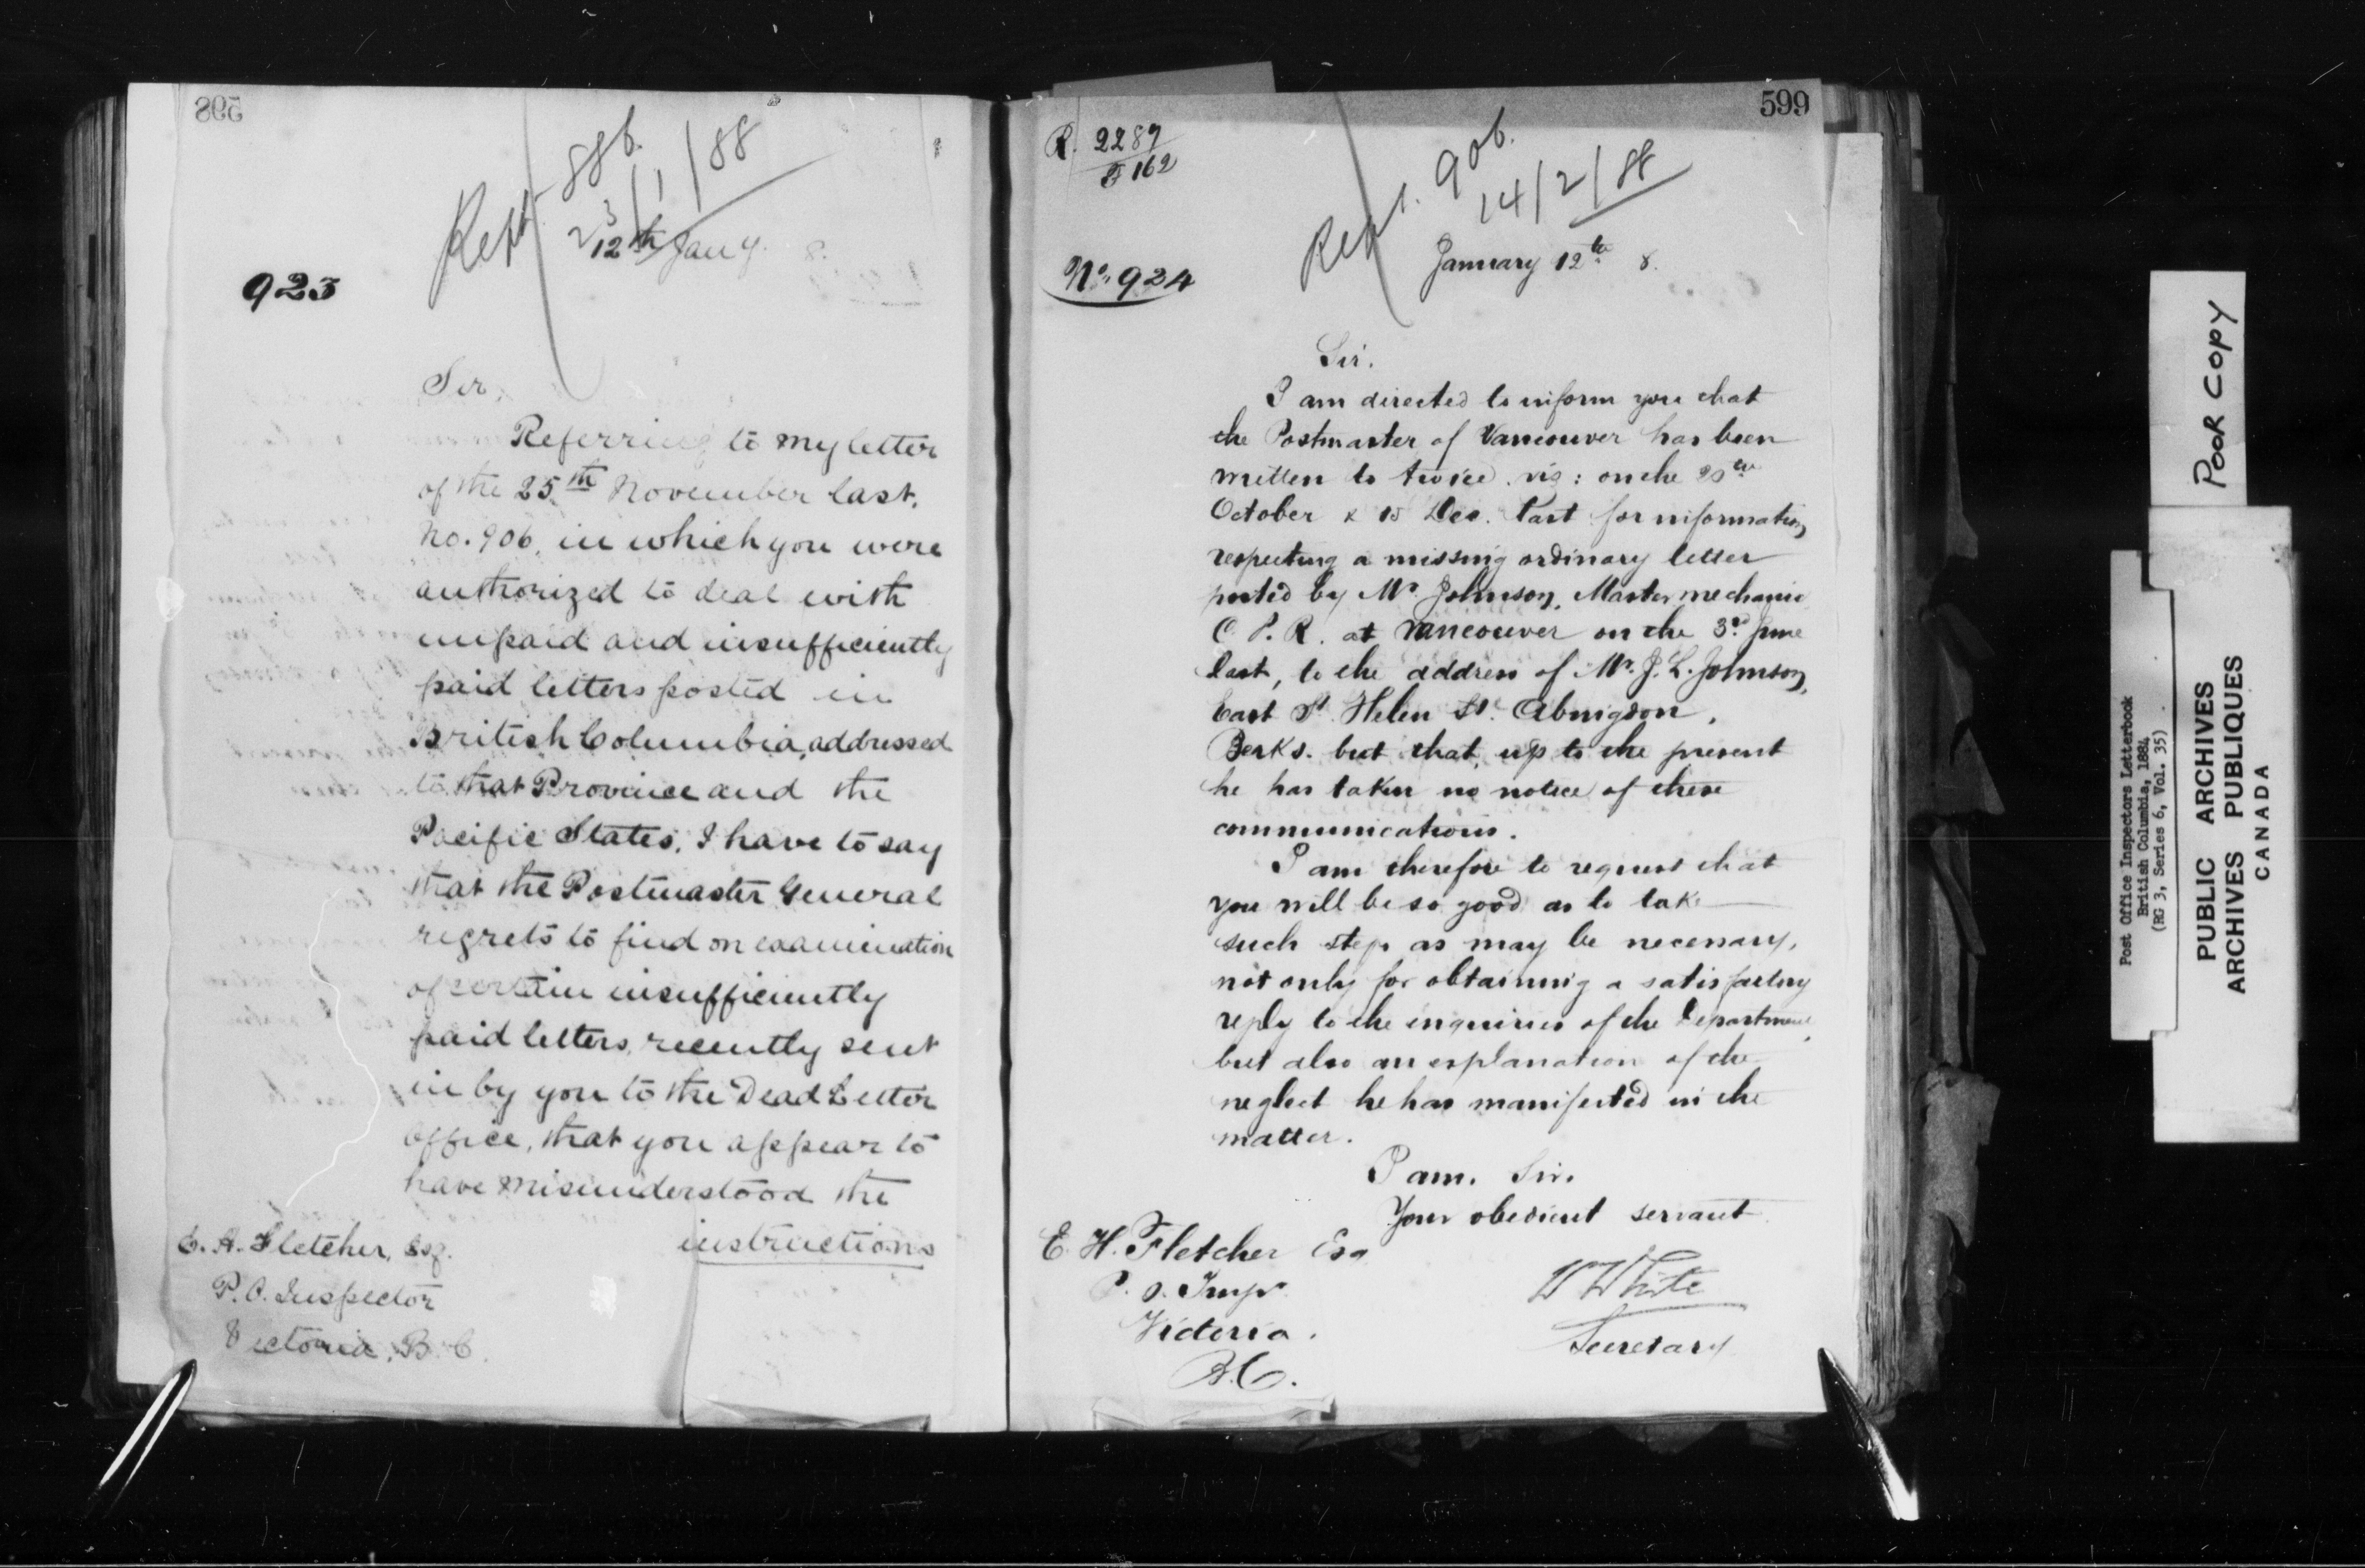 598
Rept. 886.
23/1/88
12th Jany. 8.
923
Sir,
Referring to my letter
of the 25th November last,
No. 906, in which you were
authorized to deal with
unpaid and insufficiently
paid letters posted in
British Columbia, addressed
to that Province and the
Pacific States, I have to say
that the Postmaster General
regrets to find on examination
of certain insufficiently
paid letters, recently sent
in by you to the Dead Letter
Office, that you appear to
have misunderstood the
instructions
E. H. Fletcher, Esq.
P.O. Inspector
Victoria, B.C.
599
R. 2287
F 162
Rept. 906.
14/2/88
No. 924
January 12th 8.
Sir.
I am directed to inform you that
the Postmaster of Vancouver has been
written to twice. viz: on the 20th
October & 15 Dec. last for information
respecting a missing ordinary letter
posted by Mr. Johnson, Master mechanic
C. P. R. at Vancouver on the 3rd June
last, to the address of Mr. J. L. Johnson,
East St. Helen St. Abingdon,
Berks. but that, up to the present
he has taken no notice of these
communications.
I am therefore to request that
you will be so good as to take
such steps as may be necessary,
not only for obtaining a satisfactory
reply to the inquiries of the Department,
but also an explanation of the
neglect he has manifested in the
matter.
I am. Sir.
Your obedient servant
W White
Secretary
E. H. Fletcher Esq
P. O. Inspr
Victoria.
B.C.
POOR COPY
Post Office Inspectors Letterbook
British Columbia, 1884
(RG 3, Series 6, Vol. 35)
PUBLIC ARCHIVES
ARCHIVES PUBLIQUES
CANADA